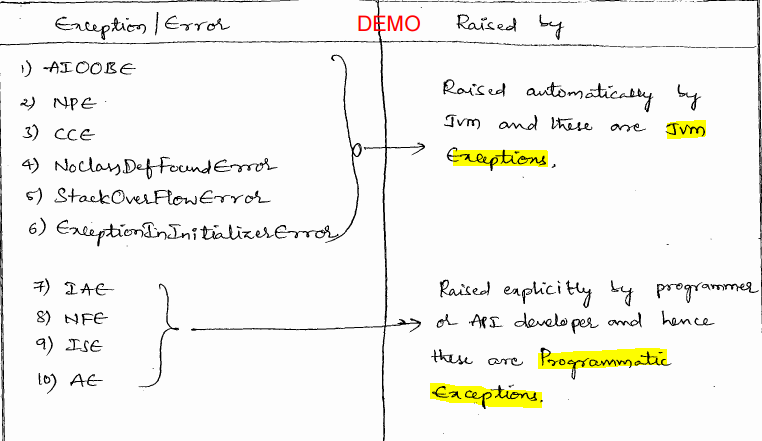 Exception/Error DEMO Raised by
1) AIOOBE
2) NPE
3) CCE
4) NoClassDefFoundError
5) StackOverFlowError
6) ExceptionInInitializerError
Raised automatically by
Jvm and these are Jvm
Exceptions.
7) IAE
8) NFE
9) ISE
10) AE
Raised explicitly by programmer
or API developer and hence
these are Programmatic
Exceptions.